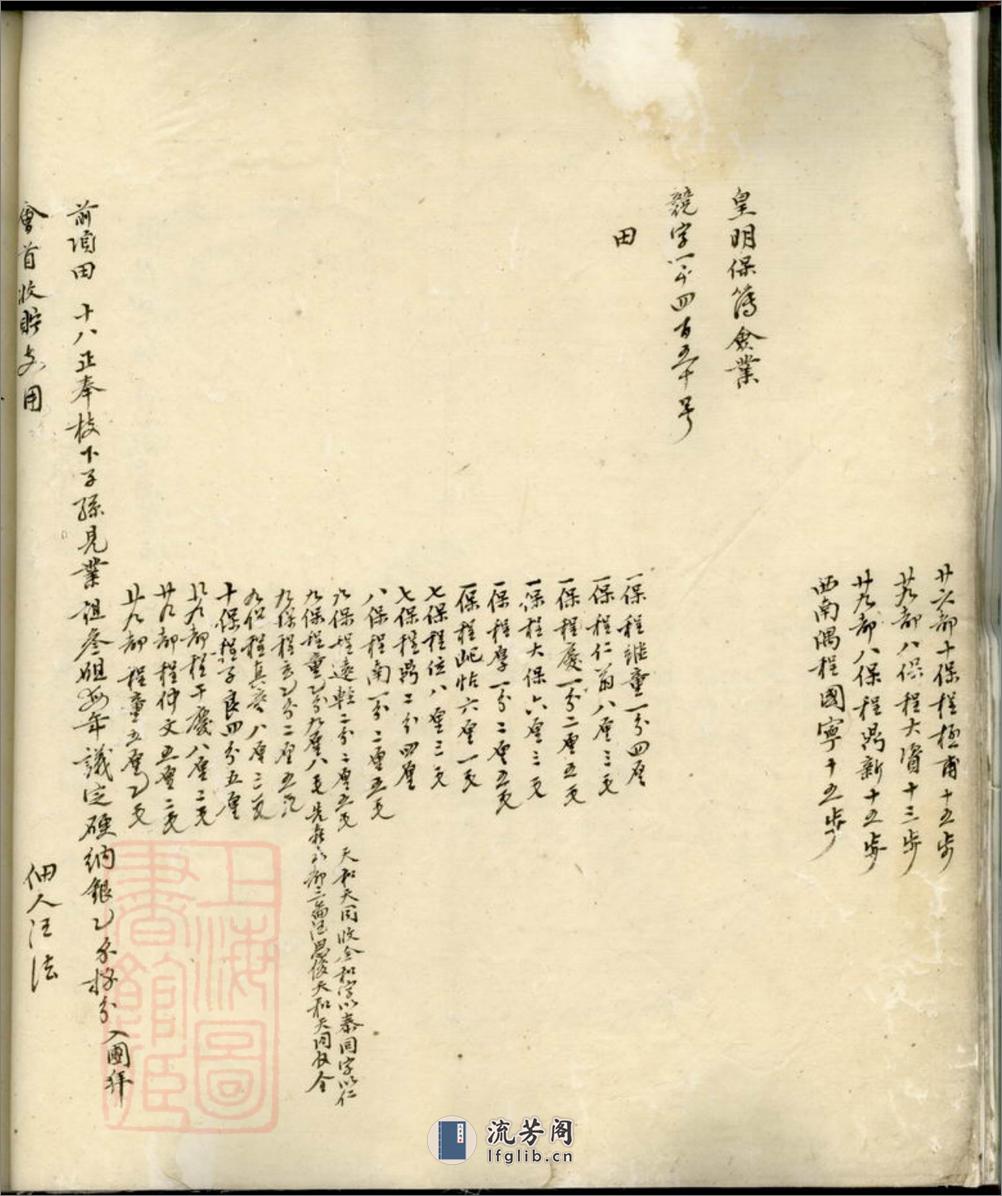 廿六都十保程極甫十五步
廿六都八保程大資十三步
廿九都八保程勝新十五步
西南隅程國寧十五步
皇明保簿僉業
競字一千四百五十号
田
一保程維童一分四厘
一保程仁翁八厘三毛
一保程慶一分二厘五毛
一保程大保六厘三毛
一保程學一分二厘五毛
一保程毗帖六厘一毛
七保程位八厘三毛
七保程勝二分四厘
八保程南一分二厘五毛
九保程遠輕二分二厘五毛 天和天同收全和字以泰同字以仁
九保程重乙分九厘八毛 都三啚汪思俊天和天同收全
九保程玄乙分二厘五毛
九保程真寄八厘二毛
十保程子良四分五厘
廿九都程千慶八厘二毛
廿九都程仲文五厘二毛
廿九都程童五厘乙毛
前項田 十八正奉枝下子孫見業租叁䄷每年議定硬納銀乙錢 分入團拜
會首收貯支用
佃人汪法
上海圖
書館藏
流芳阁
lfglib.cn